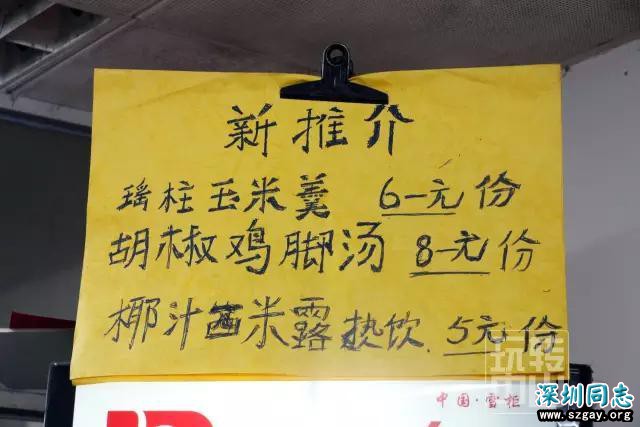 新推介
瑶柱玉米羹 6元份
胡椒鸡脚汤 8元份
椰汁西米露热饮.5元份
玩转
中国·雪柜
深圳同志
www.szgay.org